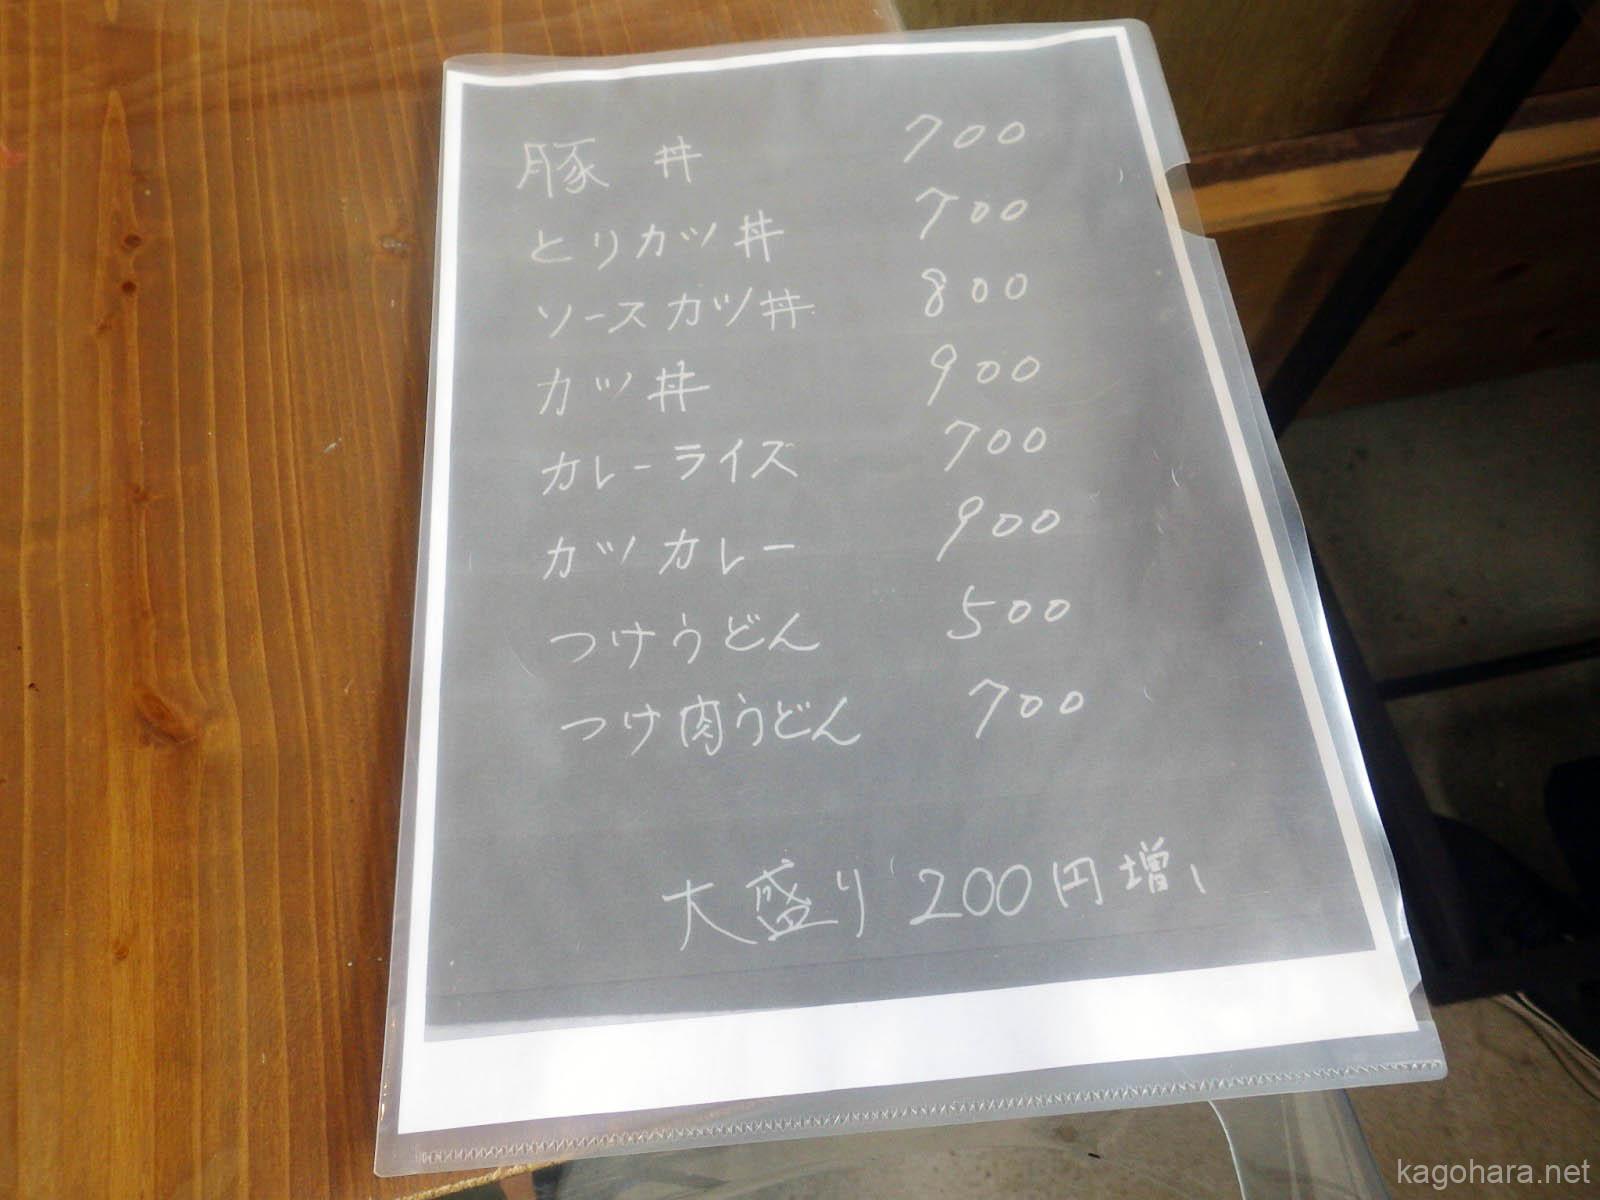 豚丼 700
とりカツ丼 700
ソースカツ丼 800
カツ丼 900
カレーライス 700
カツカレー 900
つけうどん 500
つけ肉うどん 700
大盛り 200円増し
kagohara.net